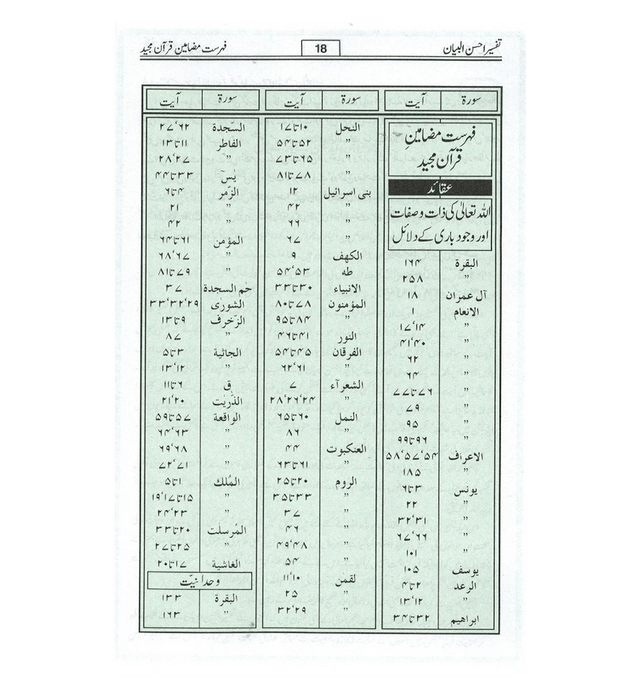 تفسیر احسن البیان
18
فہرست مضامین قرآن مجید
سورۃ آیت
فہرست مضامین
قرآن مجید
عقائد
اللہ تعالیٰ کی ذات و صفات
اور وجود باری کے دلائل
البقرة ۱۶۴
” ۲۵۸
آل عمران ۱۸
الانعام ۱
” ۱۴٬۱۷
” ۴۰٬۴۱
” ۶۲
” ۶۴
” ۷۶تا۷۷
” ۷۹
” ۹۵
” ۹۶تا۹۹
الاعراف ۵۴٬۵۷٬۵۸
” ۱۸۵
یونس ۳تا۶
” ۲۲
” ۳۱٬۳۲
” ۶۶٬۶۷
” ۱۰۱
یوسف ۱۰۵
الرعد ۲تا۴
” ۱۲٬۱۳
ابراھیم ۳۲تا۳۴
سورۃ آیت
النحل ۱۰تا۱۷
” ۵۲تا۵۴
” ۶۵تا۷۳
” ۷۸تا۸۱
بنی اسرائیل ۱۲
” ۴۲
” ۶۶
” ۶۷
الکھف ۹
طه ۵۳٬۵۴
الانبیاء ۳۰تا۳۳
المؤمنون ۷۸تا۸۰
” ۸۴تا۹۵
النور ۴۱تا۴۶
الفرقان ۴۵تا۵۴
” ۶۱٬۶۲
الشعرآء ۷
” ۲۴٬۲۶٬۲۸
النمل ۶۰تا۶۵
” ۸۶
العنکبوت ۴۴
” ۶۱تا۶۳
الروم ۲۰تا۲۵
” ۳۳تا۳۵
” ۳۷
” ۴۶
” ۴۸٬۴۹
” ۵۴
لقمن ۱۰٬۱۱
” ۲۵
” ۲۹٬۳۲
سورۃ آیت
السّجدة ۶۲٬۲۷
الفاطر ۱۱تا۱۳
” ۲۷٬۲۸
یٰسٓ ۳۳تا۴۴
الزّمر ۴تا۶
” ۲۱
” ۴۲
المؤمن ۶۱تا۶۴
” ۶۷٬۶۸
” ۷۹تا۸۱
حم السجدة ۳۷
الشوری ۲۹٬۳۲٬۳۳
الزّخرف ۹تا۱۳
” ۸۷
الجاثیة ۳تا۵
” ۱۲٬۱۳
ق ۶تا۱۱
الذّریٰت ۲۰٬۲۱
الواقعة ۵۷تا۵۹
” ۶۳٬۶۴
” ۶۸٬۶۹
” ۷۱٬۷۲
المُلک ۱تا۵
” ۱۵تا۱۷٬۱۹
” ۲۳٬۲۴
المُرسلٰت ۲۰تا۳۳
” ۲۵تا۲۷
الغاشیة ۱۷تا۲۰
وحدانیّت
البقرة ۱۳۳
” ۱۶۳